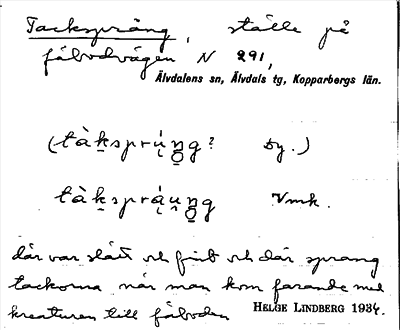 Tacksprång, ställe på
fäbodvägen N 291,
Älvdalens sn, Älvdals tg, Kopparbergs län.
(tàk̠sprų́n̠g? Dy.)
tàk̠sprą́u̯n̠g Vmk.
där var slätt och fint och där sprang
tackorna när man kom farande med
kreaturen till fäboden
HELGE LINDBERG 1934.